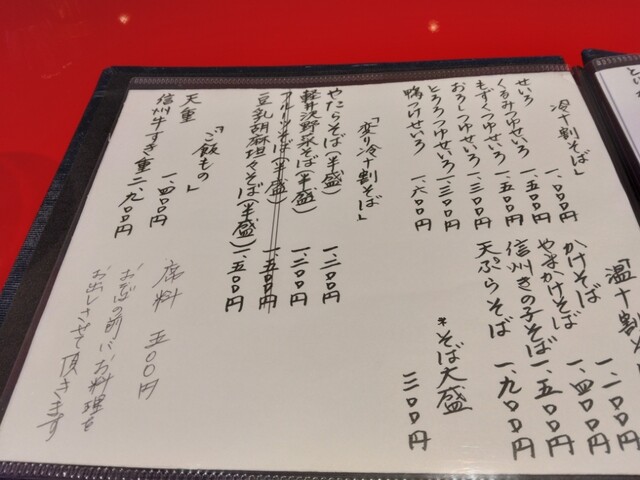 「冷十割そば」
せいろ 一、〇〇〇円
くるみつゆせいろ 一、五〇〇円
もずくつゆせいろ 一、三〇〇円
おろしつゆせいろ 一、三〇〇円
とろろつゆせいろ
鴨つけせいろ 一、六〇〇円
「温十割そ
かけそば 一、一〇〇円
やまかけそば 一、四〇〇円
信州きの子そば 一、五〇〇円
天ぷらそば 一、九〇〇円
*そば大盛 三〇〇円
「変り冷十割そば」
やたらそば(半盛) 一、二〇〇円
軽井沢野菜そば(半盛) 一、二〇〇円
フルーツそば(半盛) 一、五〇〇円
豆乳胡麻坦々そば(半盛) 一、五〇〇円
「ご飯もの」
天重 一、四〇〇円
信州牛すき重 二、九〇〇円
席料 五〇〇円
お蕎の前にお料理を
お出しさせて頂きます